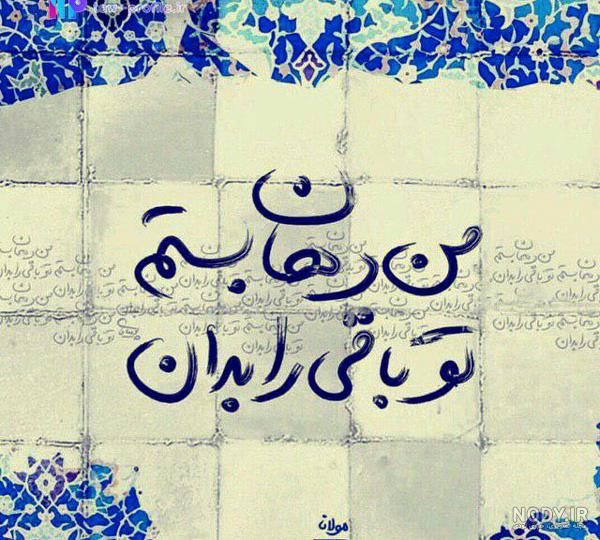 من دهان بستم
تو باقی را بدان
مولانا
NODY.IR